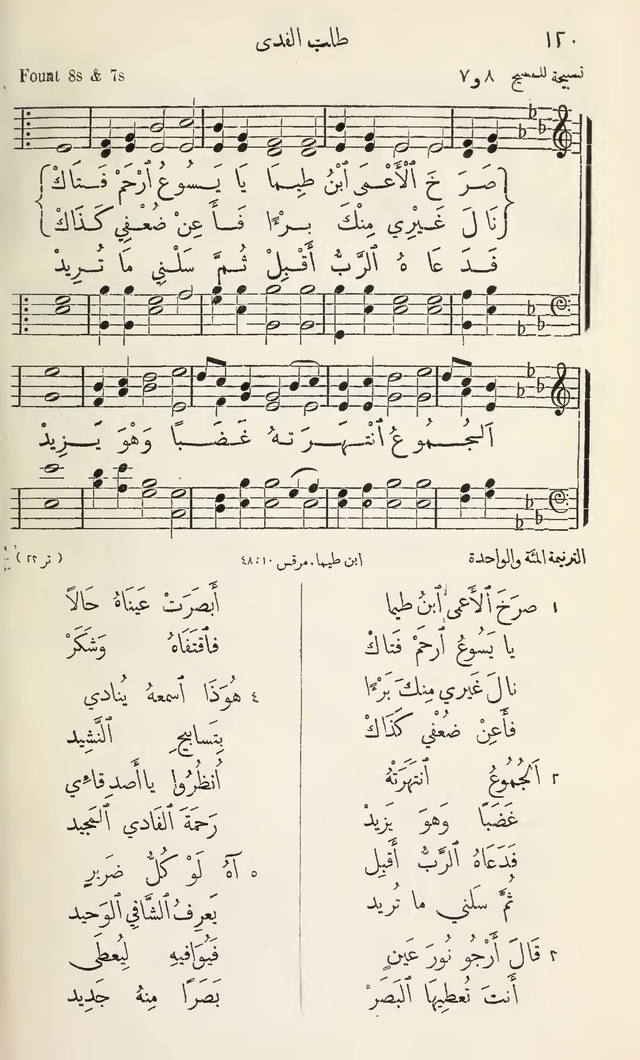 ١٢٠
طلب الفدى
تسبيحة للمسيح ٨ و٧
Fount 8s & 7s
صَرَخَ ٱلْأَعْمَى ٱبْنُ طِيمَا يَا يَسُوعُ ٱرْحَمْ فَتَاكْ
نَالَ غَيْرِي مِنْكَ بِرْءًا فَأَعِنْ ضُعْفِي كَذَاكْ
فَدَعَاهُ ٱلرَّبُّ أَقْبِلْ ثُمَّ سَلْنِي مَا تُرِيدْ
اَلجُمُوعُ ٱنْتَهَرَتهُ غَضَبًا وَهْوَ يَزِيدْ
الترنيمة المئة والواحدة
ابن طيما. مرقس ١٠:٤٨
(تر ٢٢)
١ صرَخَ ٱلأَعمى ٱبنُ طيما
يا يَسُوعُ ٱرحَمْ فَتاكْ
نالَ غَيري مِنكَ بَرْءًا
فأَعِنْ ضُعْفي كَذَاكْ
٢ اَلجُمُوعُ ٱنتهَرَتهُ
غَضَبًا وَهوَ يَزيدْ
فَدَعَاهُ ٱلرَّبُّ أَقبِل
ثُمَّ سَلني ما تُريد
٢ قَالَ أَرْجُو نُورَ عَينٍ
أَنتَ تُعطِيهَا ٱلبَصَرْ
أَبصَرَتْ عَينَاهُ حَالاً
فاقتَفَاهُ وَشَكَرْ
٤ هُوَذَا ٱسمعهُ يُنادي
بِتَسابيحِ ٱلنَّشِيد
اُنظُرُوا يا أَصدِقاءِي
رَحمَةَ ٱلفَادي ٱلمَجيد
٥ آهُ لَوْ كُلُّ ضَريرٍ
يَعرِفُ ٱلشَّافي ٱلوَحيد
فَيُوَافيهِ لِيُعطَى
بَصَرًا مِنهُ جَديد